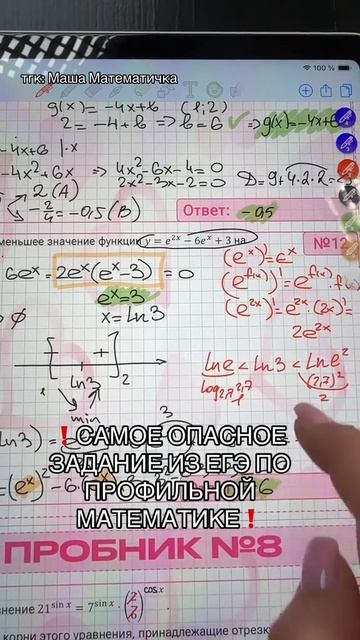 100 %
тгк: Маша Математичка
g(x) = -4x+b (1;2)
2 = -4+b => b=6 => g(x)=-4x+6
-4x+6 |·x
-4x²+6x => 4x²-6x-4=0
2x²-3x-2=0 D=9+4·2·2=
2(A)
-2/4=-0,5(B)
Ответ: -0,5
меньшее значение функции y = e^{2x} − 6e^x + 3 на
№12
6e^x = 2e^x(e^x-3) = 0
(e^x)'=e^x
e^x=3
(e^{f(x)})'=e^{f(x)}·f'(x)
∅ x=ln3
(e^{2x})'=e^{2x}·(2x)'=
2e^{2x}
- +
1 ln3 2
min
lne < ln3 < lne²
log_{2,7}2,7 (2,7)²
1 2
ln3) =
❗САМОЕ ОПАСНОЕ
ЗАДАНИЕ ИЗ ЕГЭ ПО
ПРОФИЛЬНОЙ
МАТЕМАТИКЕ❗
=(e^x)²-6· 6
ПРОБНИК №8
нение 21^{sin x} = 7^{sin x} ·
cosx
корни этого уравнения, принадлежащие отрезку